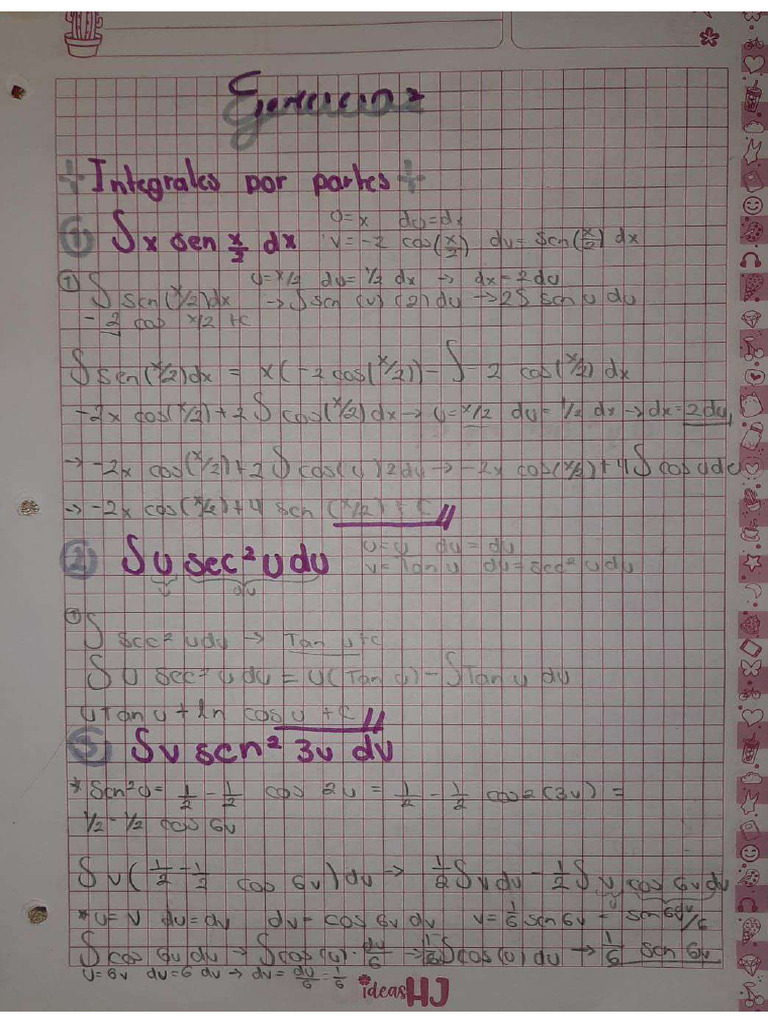 Ejercicios
Integrales por partes
1 ∫x sen x/2 dx u=x du=dx
v=-2 cos(x/2) dv= sen(x/2) dx
① ∫ sen(x/2)dx u=x/2 du=1/2 dx → dx=2du
→ ∫ sen (u) (2) du → 2∫ sen u du
-2 cos x/2 +c
∫ sen(x/2)dx = x(-2 cos(x/2)) - ∫ -2 cos(x/2) dx
-2x cos(x/2)+2 ∫ cos(x/2)dx → u=x/2 du=1/2 dx → dx=2du
→ -2x cos(x/2)+2∫ cos(u) 2du → -2x cos(x/2)+4∫ cos u du
→ -2x cos(x/2)+4 sen (x/2)+c
2 ∫u sec² u du u=u du=du
v=Tan u dv=sec² u du
u dv
① ∫ sec² u du → Tan u+c
∫ u sec² u du = u(Tan u) - ∫Tan u du
u Tan u + ln cos u + c
3 ∫v sen² 3v dv
* Sen²u= 1/2 - 1/2 cos 2u = 1/2 - 1/2 cos2(3v) =
1/2 - 1/2 cos 6v
∫v(1/2 - 1/2 cos 6v) dv → 1/2∫v dv - 1/2∫ v cos 6v dv
*u= v du=dv dv= cos 6v dv v=1/6 sen 6v = sen 6v/6
∫ cos 6v dv → ∫cos(u)·du/6 → 1/6∫cos(u) du → 1/6 sen 6v
u=6v du=6 dv → dv= du/6 = 1/6
ideas HJ